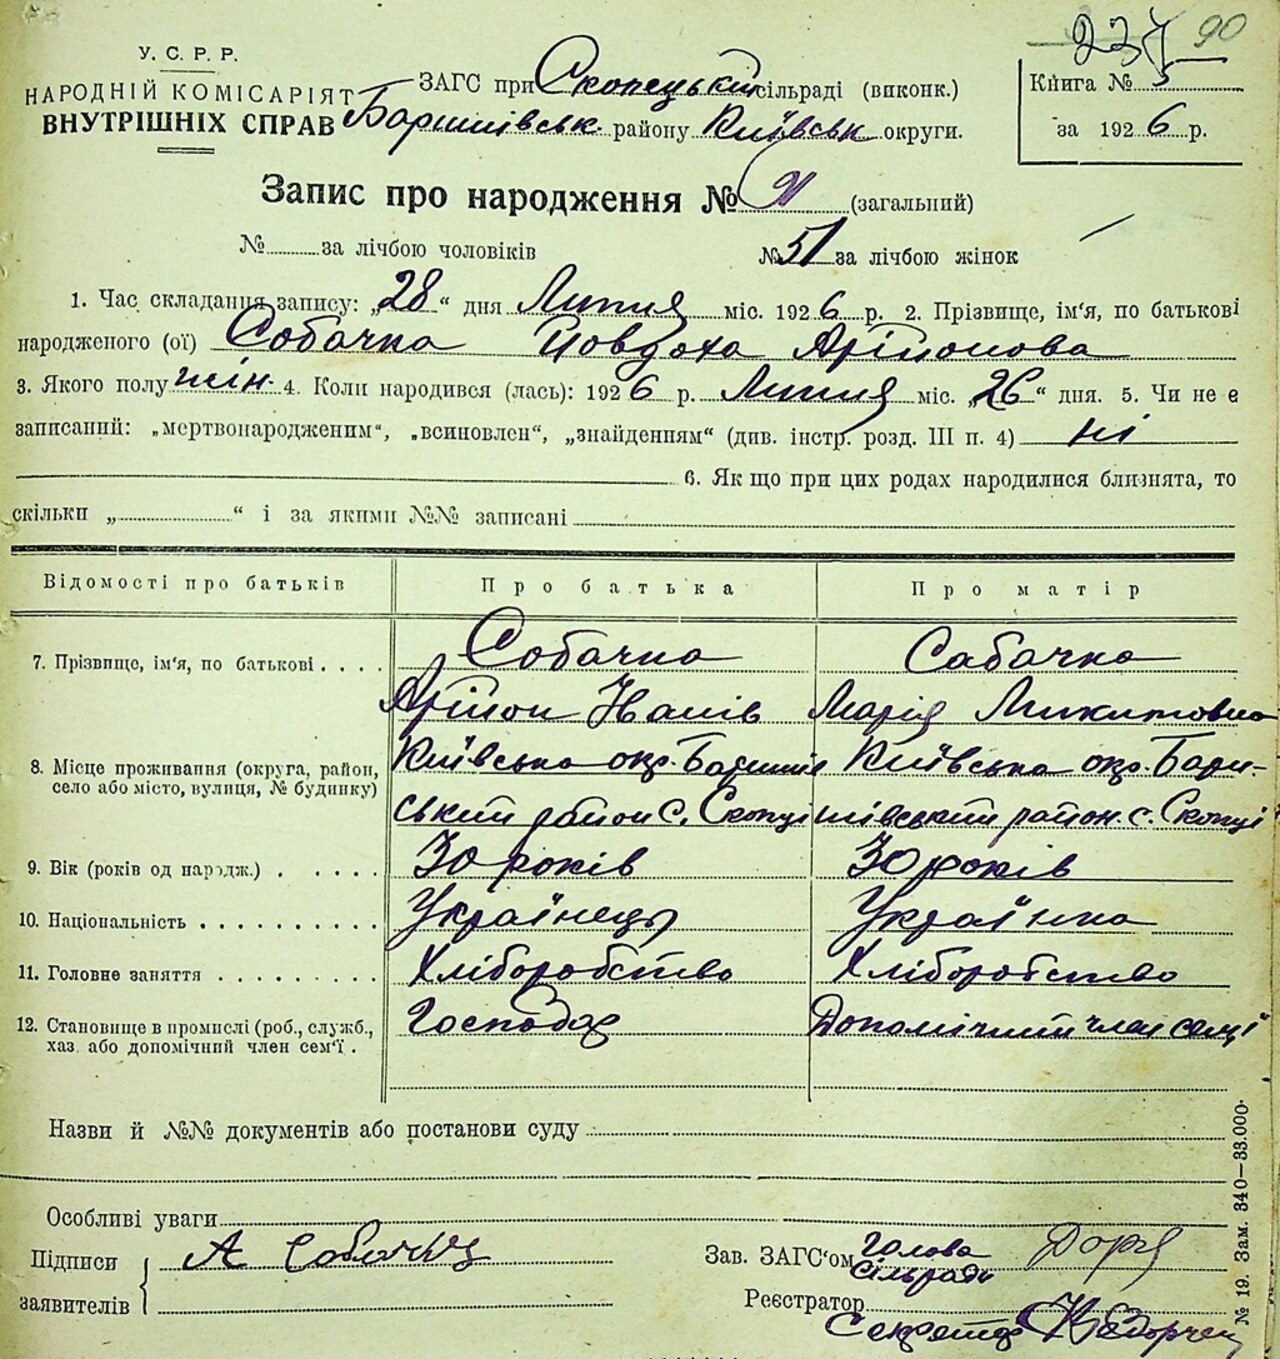 90
У. С. Р. Р.
НАРОДНІЙ КОМІСАРІЯТ
ВНУТРІШНІХ СПРАВ
ЗАГС при Скопецькій сільраді (виконк.)
Баришівськ. району Київськ округи.
Книга № 5
за 1926 р.
Запис про народження № 91 (загальний)
№ за лічбою чоловіків
№ 51 за лічбою жінок
1. Час складання запису: „28“ дня Липня міс. 1926 р. 2. Прізвище, ім‘я, по батькові
народженого (ої) Собачка Йовдоха Арімонова
3. Якого полу жін. 4. Коли народився (лась): 1926 р. Липня міс. „26“ дня. 5. Чи не є
записаний: „мертвонародженим“, „всиновлен“, „знайденням“ (див. інстр. розд. III п. 4) ні
6. Як що при цих родах народилися близнята, то
скільки „ “ і за якими №№ записані
Відомості про батьків
Про батька
Про матір
7. Прізвище, ім‘я, по батькові . . . .
Собачка
Арімон Іванів
Сабачка
Марія Микитовна
8. Місце проживання (округа, район,
село або місто, вулиця, № будинку)
Київська окр. Баришів
ський район с. Скопці
Київська окр. Бари-
шівський район. с. Скопці
9. Вік (років од народж.) . . . . .
30 років
30 років
10. Національність . . . . . . . . . .
Українець
Українка
11. Головне заняття . . . . . . . . .
Хліборобство
Хліборобство
12. Становище в промислі (роб., служб.,
хаз. або допомічний член сем‘ї .
Господар
Допомічний член семї
Назви й №№ документів або постанови суду
Особливі уваги
Підписи
заявителів
А Собачка
Зав. ЗАГС‘ом Голова
Сільради
Реєстратор
Секретар
№ 19. Зам. 340—33.000.